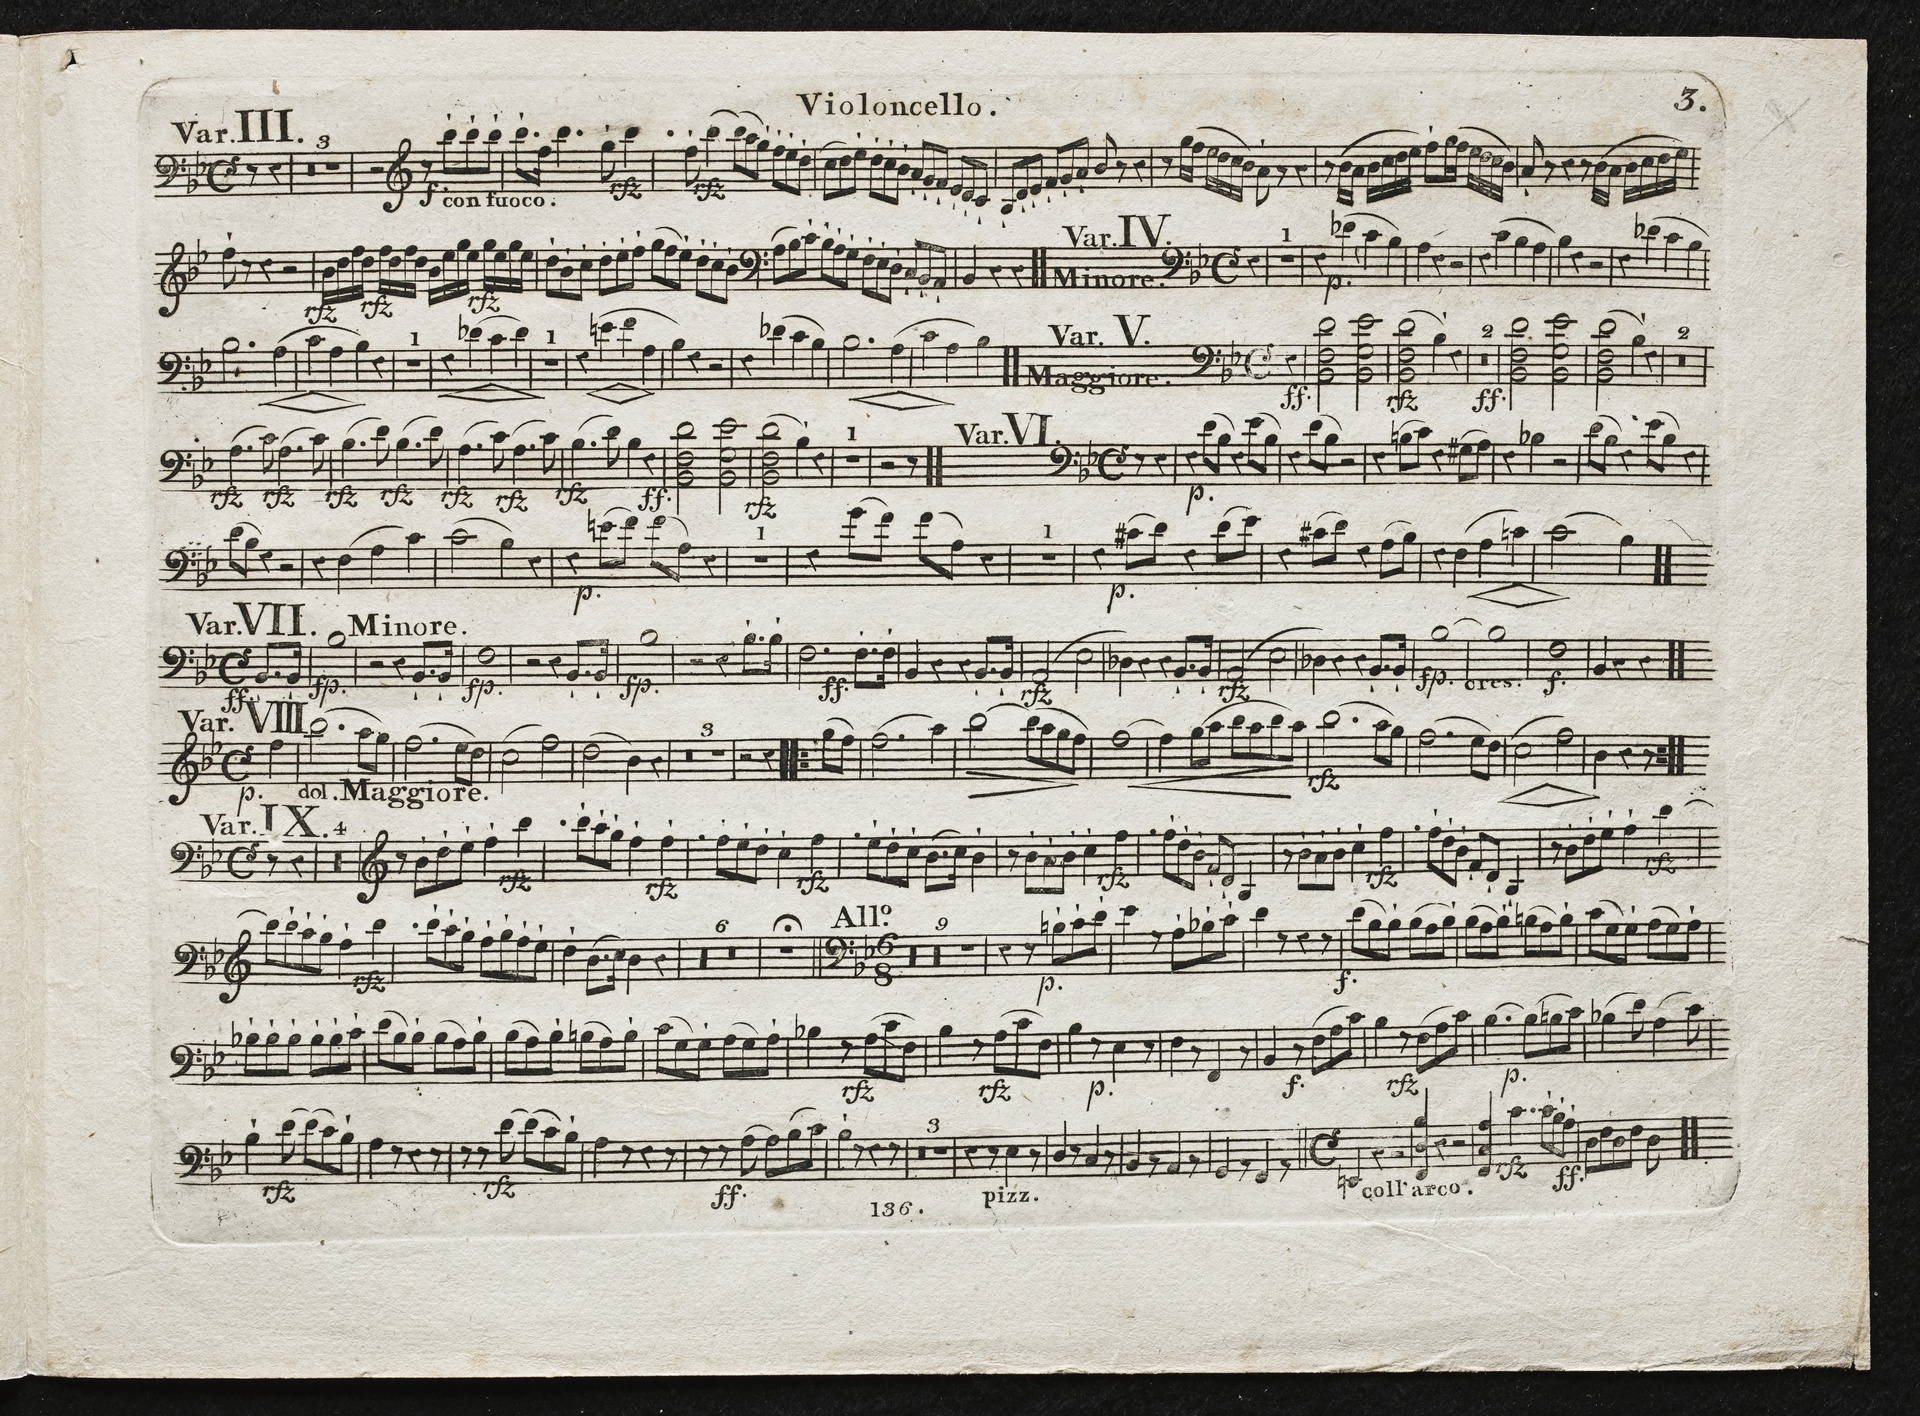 Violoncello.
3.
Var. III.
3
f. con fuoco. rfz rfz
Var. IV.
Minore.
1
rfz rfz rfz p.
1 1
Var. V.
Maggiore.
2 2
ff. rfz ff.
rfz rfz rfz rfz rfz rfz rfz ff. rfz
1
Var. VI.
p.
1 1
p. p.
Var. VII. Minore.
ff. fp. fp. fp. ff. rfz rfz fp. cres: f.
Var. VIII
3
p. dol. Maggiore. rfz
Var. IX. 4
rfz rfz rfz rfz rfz rfz
6
All.o
6
8
9
rfz p. f.
rfz rfz p. f. rfz p.
3
rfz rfz ff. pizz. coll'arco. rfz ff.
136.